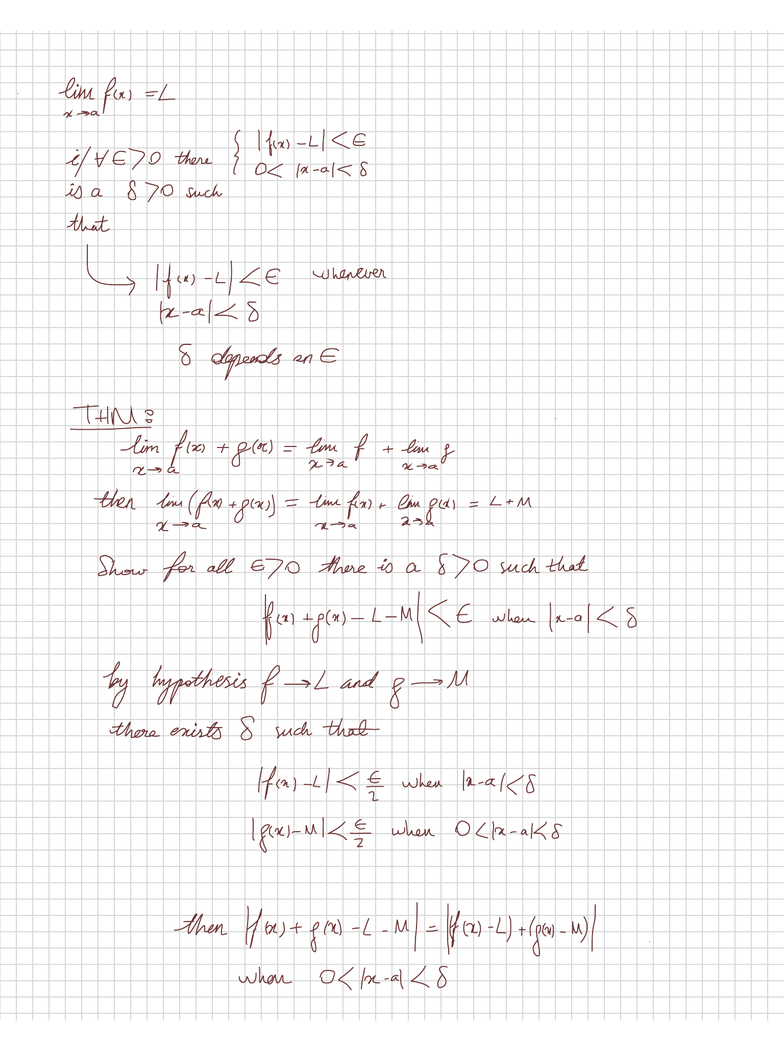 lim f(x) = L
x→a
if ∀ ∈ > 0 there { |f(x) - L| < ∈
0 < |x-a| < δ
is a δ > 0 such
that
|f(x) - L| < ∈ whenever
|x-a| < δ
δ depends on ∈
THM:
lim f(x) + g(x) = lim f + lim g
x→a x→a x→a
then lim (f(x) + g(x)) = lim f(x) + lim g(x) = L + M
x→a x→a x→a
Show for all ∈ > 0 there is a δ > 0 such that
|f(x) + g(x) - L - M| < ∈ when |x-a| < δ
by hypothesis f → L and g → M
there exists δ such that
|f(x) - L| < ∈/2 when |x-a| < δ
|g(x) - M| < ∈/2 when 0 < |x-a| < δ
then |f(x) + g(x) - L - M| = |f(x) - L) + (g(x) - M)|
when 0 < |x-a| < δ